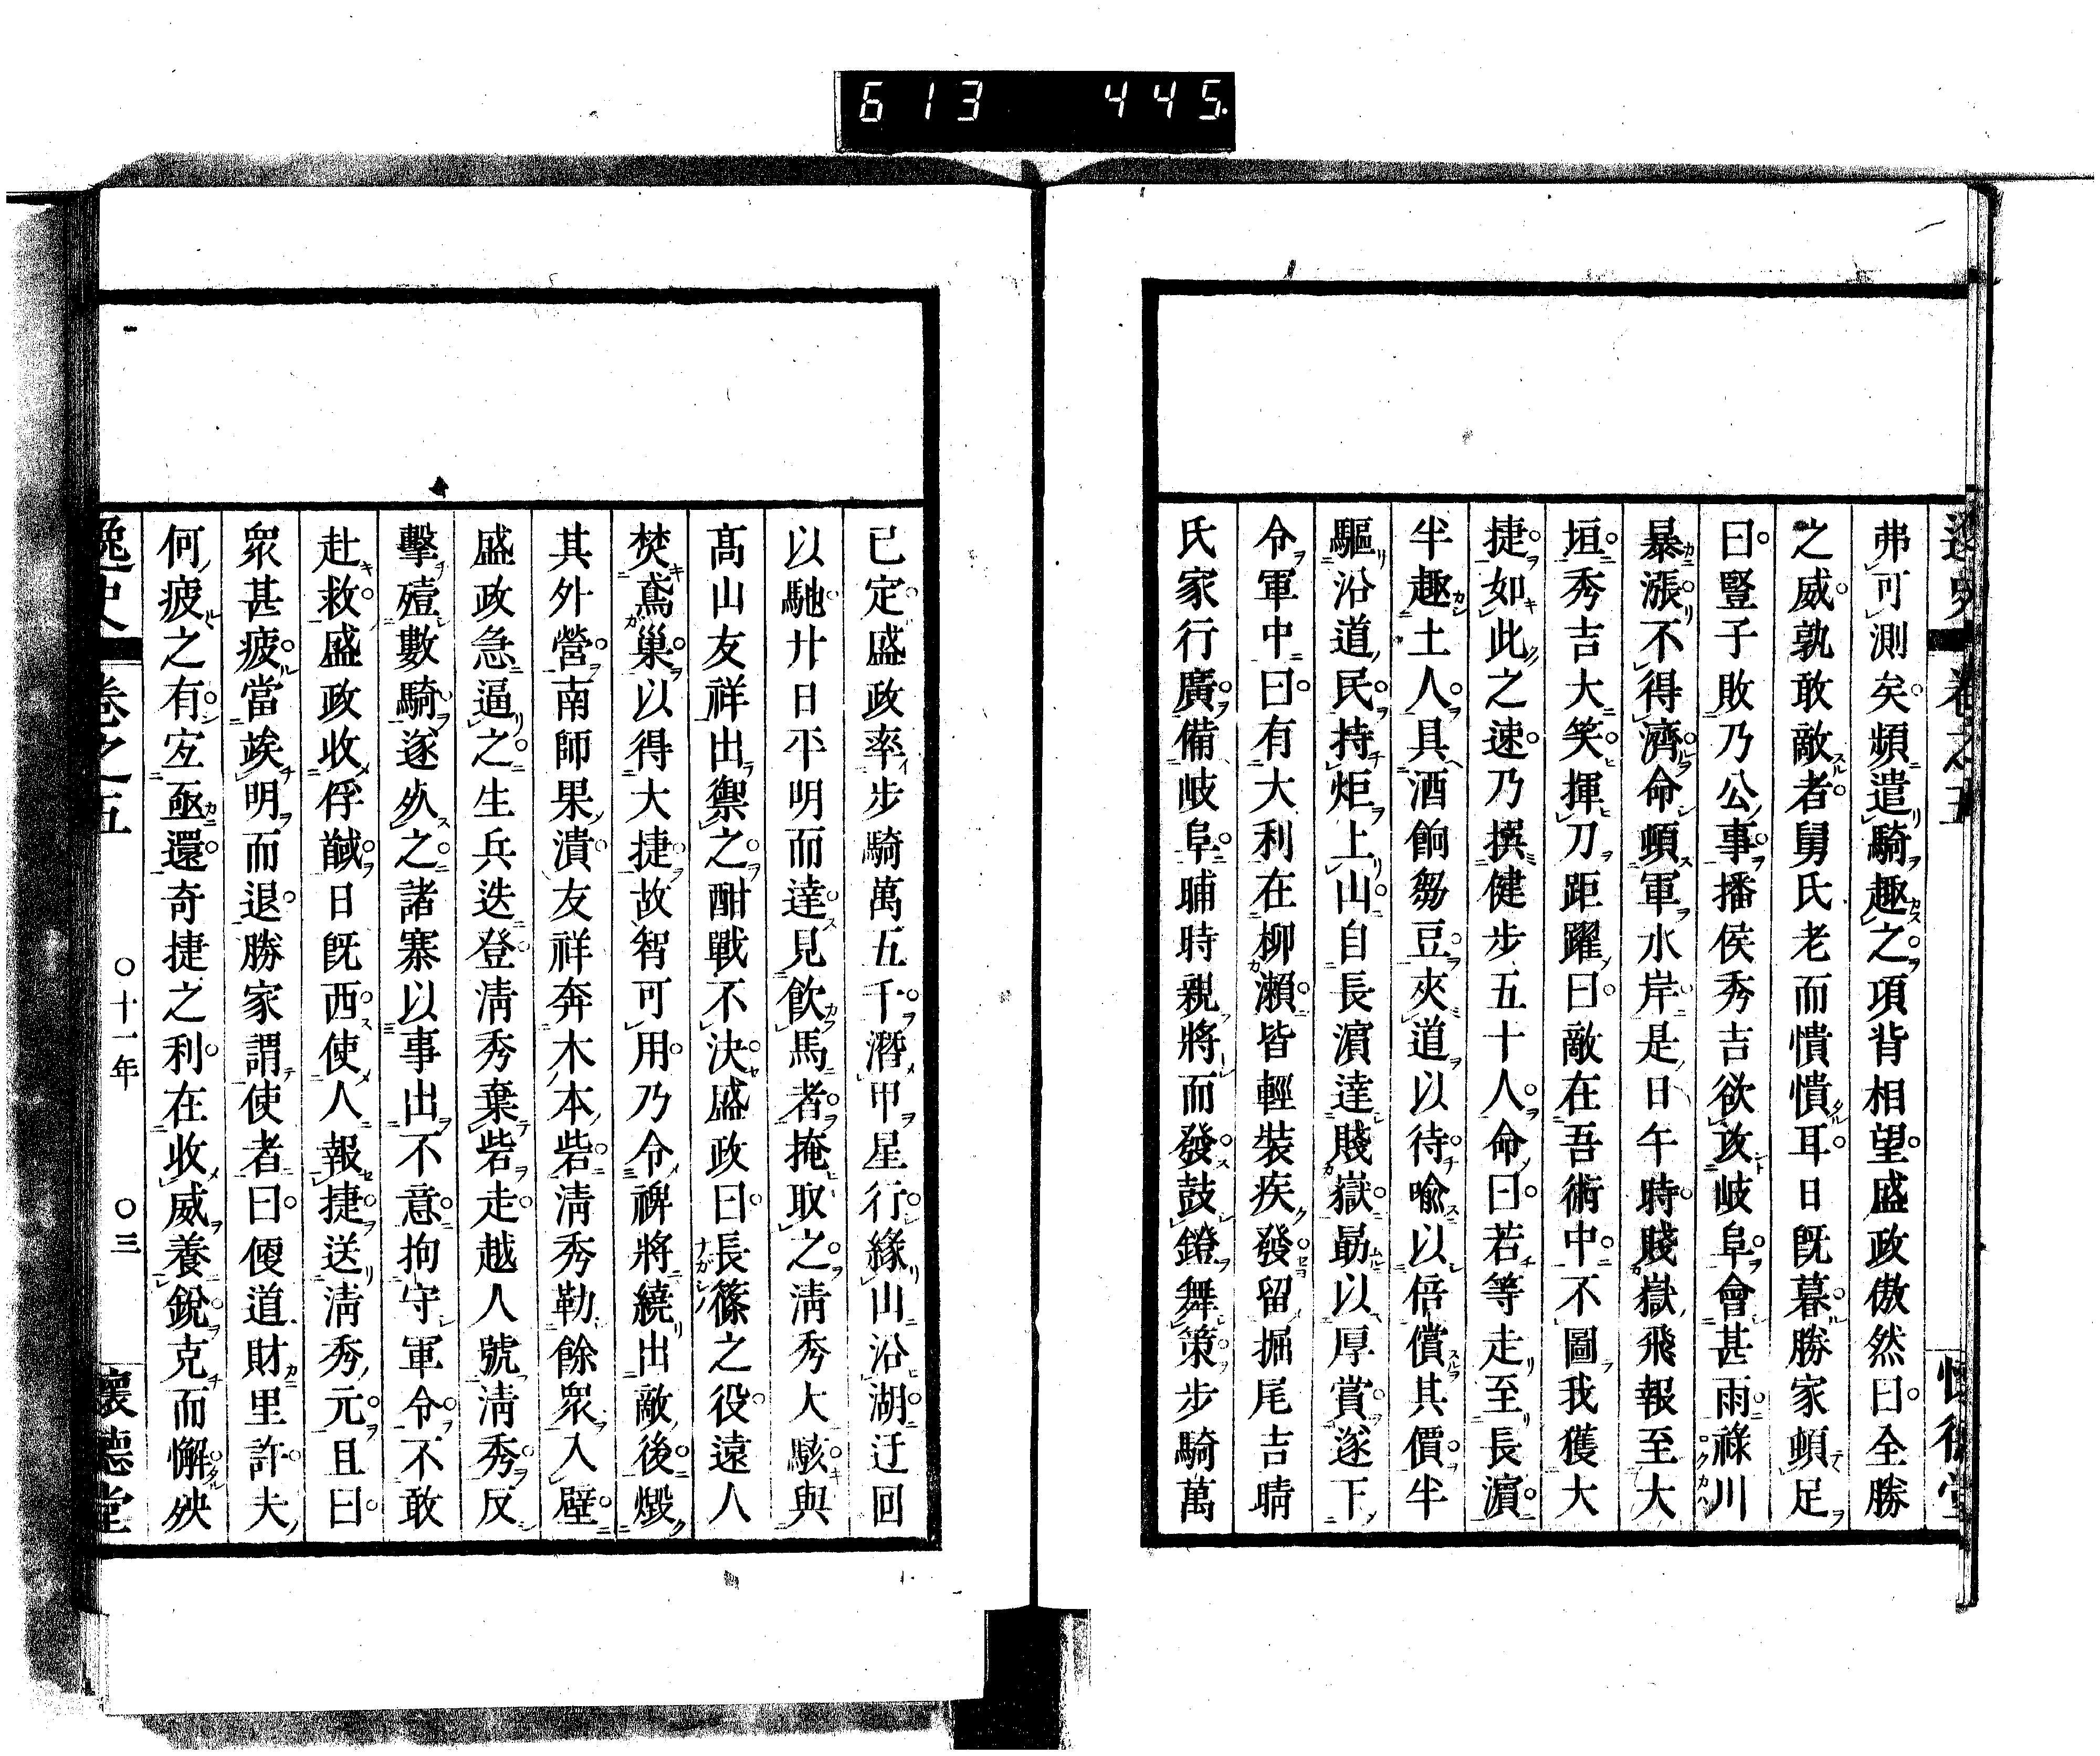 613 445.
逸史 卷之五 懷德堂
弗可測矣頻遣騎趣之項背相望盛政傲然曰全勝
之威孰敢敵者舅氏老而憒憒耳日旣暮勝家頓足
曰豎子敗乃公事播侯秀吉欲攻岐阜會甚雨祿川
暴漲不得濟命頓軍水岸是日午時賤嶽飛報至大
垣秀吉大笑揮刀距躍曰敵在吾術中不圖我獲大
捷如此之速乃撰健步五十人命曰若等走至長濵
半趣土人具酒餉芻豆夾道以待喩以倍償其價半
驅沿道民持炬上山自長濵達賤嶽勗以厚賞遂下
令軍中曰有大利在柳瀨皆輕裝疾發留掘尾吉晴
氏家行廣備岐阜晡時親將而發鼓鐙舞策步騎萬
已定盛政率步騎萬五千潛甲星行緣山沿湖迂回
以馳廾日平明而達見飮馬者掩取之淸秀大駭與
髙山友祥出禦之酣戰不決盛政曰長篠之役遠人
焚鳶巢以得大捷故智可用乃令裨將繞出敵後燬
其外營南師果潰友祥奔木本砦淸秀勒餘衆入壁
盛政急逼之生兵迭登淸秀棄砦走越人號淸秀反
擊殪數騎遂死之諸寨以事出不意拘守軍令不敢
赴救盛政收俘馘日旣西使人報捷送淸秀元且曰
衆甚疲當竢明而退勝家謂使者曰便道財里許夫
何疲之有宐亟還奇捷之利在收威養銳克而懈殃
逸史 卷之五 〇十一年 〇三 懷德堂